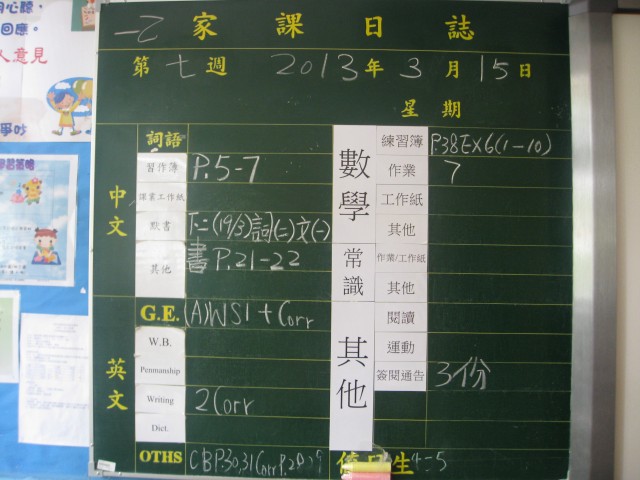 一乙 家課日誌
第七週 2013年3月15日
星期
中文
詞語
習作簿 P.5-7
課業工作紙
默書 下二(19/3)詞(二)文(一)
其他 書P.21-22
英文
G.E. (A)WS1+Corr
W.B.
Penmanship
Writing 2Corr
Dict.
OTHS CBP.30,31 Corr P.
數學
練習簿 P.38EX6(1-10)
作業 7
工作紙
其他
常識
作業/工作紙
其他
其他
閱讀
運動
簽閱通告 3份
值日生
心聽,
回應。
人意見
爭吵